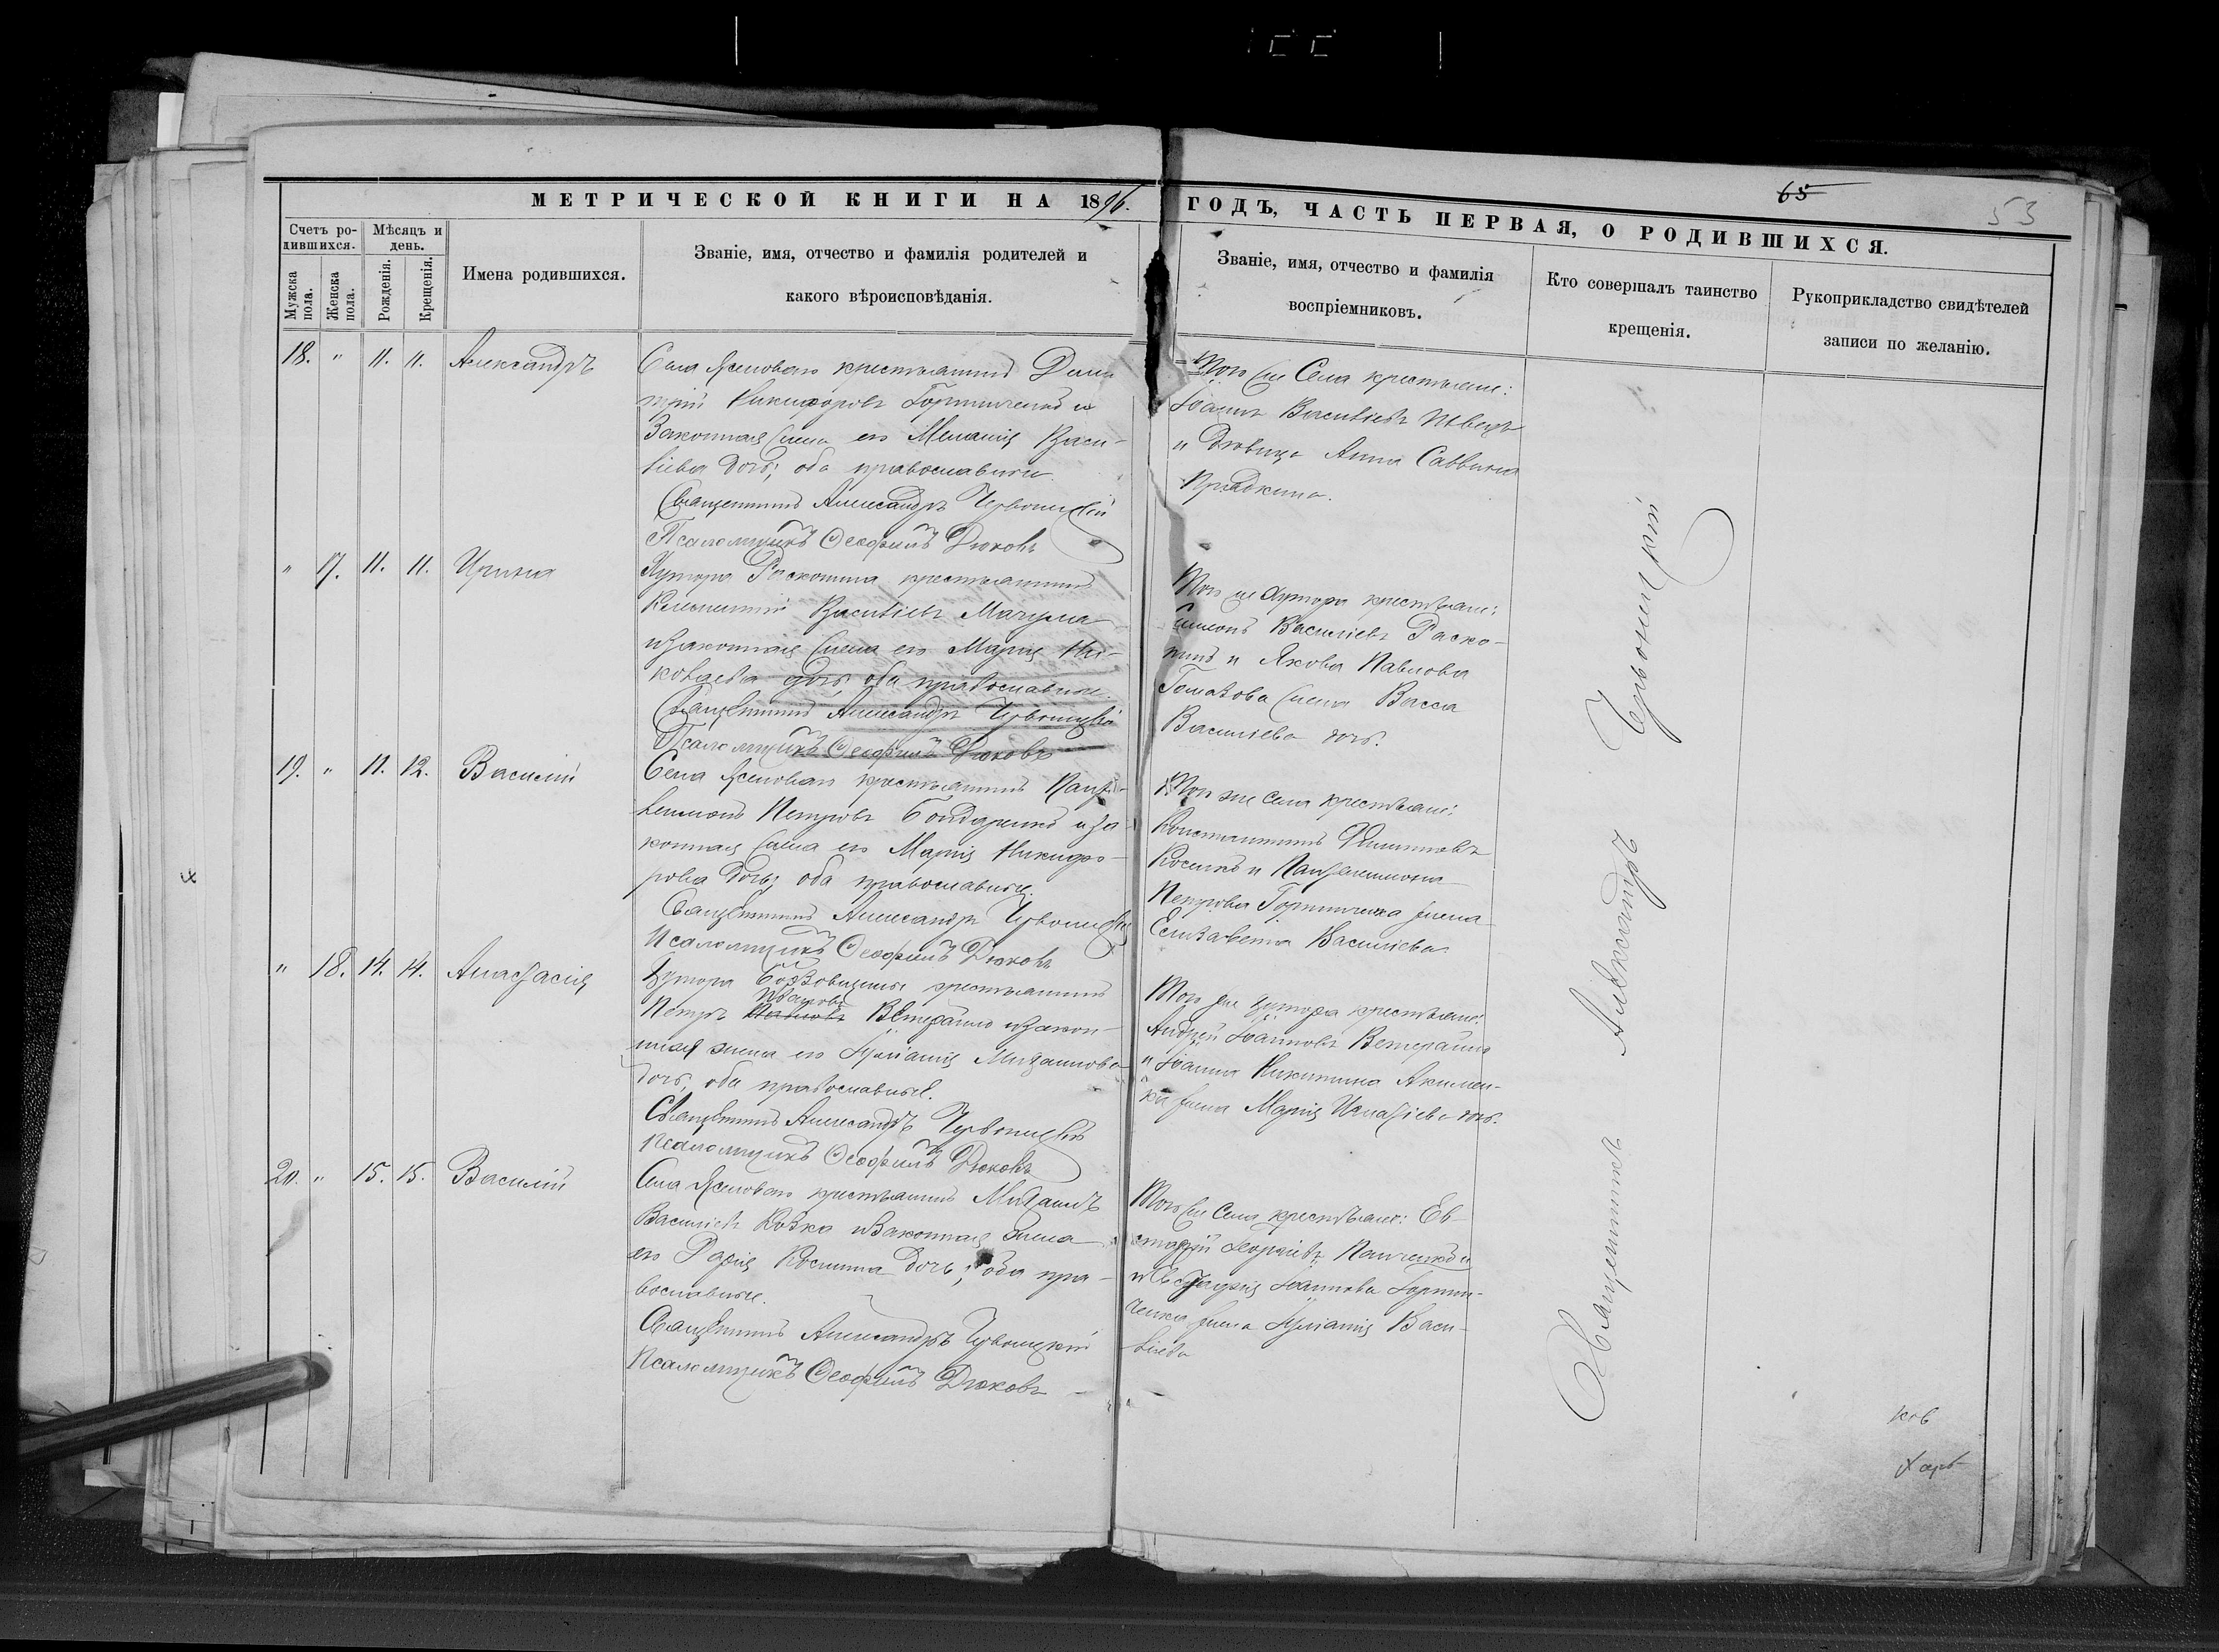 65
53
МЕТРИЧЕСКОЙ КНИГИ НА 1896.
ГОДЪ, ЧАСТЬ ПЕРВАЯ, О РОДИВШИХСЯ.
Счетъ ро-
дившихся.
Мѣсяцъ и
день.
Мужска
пола.
Женска
пола.
Рожденія.
Крещенія.
Имена родившихся.
Званіе, имя, отчество и фамилія родителей и
какого вѣроисповѣданія.
Званіе, имя, отчество и фамилія
воспріемниковъ.
Кто совершалъ таинство
крещенія.
Рукоприкладство свидѣтелей
записи по желанію.
18. " 11. 11. Александръ
Села Ясеноваго крестьянинъ Дими-
трій Никифоровъ Гортинченко и
Законная жена его Меланія Васи-
ліева дочь; оба православные
Священникъ Александръ Червонецкій
Псаломщикъ Ѳеофилъ Дюковъ
Того же Села крестьяне:
Іоаннъ Василіевъ Швецъ
и Дѣвица Анна Саввина
Прядкина.
" 17. 11. 11. Ирина
Хутора Раскошина крестьянинъ
Василіевъ Мачула
и Законная жена его Марія Ни-
колаева дочь, оба православные.
Священникъ Александръ Червонецкій
Псаломщикъ Ѳеофилъ Дюковъ
Того же Хутора крестьяне:
Симеонъ Василіевъ Раско-
шинъ и Якова Павлова
жена Васса
Василіева дочь.
19. " 11. 12. Василій
Села Ясеноваго крестьянинъ Пантe-
леимонъ Петровъ Бондаренко и за-
конная жена его Марія Никифо-
рова дочь; оба православные.
Священникъ Александръ Червонецкій
Псаломщикъ Ѳеофилъ Дюковъ
Того же Села крестьяне:
Константинъ Филипповъ
Косенко и Пантелеимона
Петрова Гортинченка жена
Елизавета Василіева
" 18. 14. 14. Анастасія
Хутора крестьянинъ
Иванов
Петръ Павловъ Ветерайло и закон-
ная жена его Іуліанія Михаилова
дочь, оба православные.
Священникъ Александръ Червонецкій
Псаломщикъ Ѳеофилъ Дюковъ
Того же Хутора крестьяне:
Андрей Іоанновъ Ветерайло
и Іоанна Никитина Акимен-
ка жена Марія Игнатіева дочь.
20. " 15. 15. Василій
Села Ясеноваго крестьянинъ Михаилъ
Василіевъ Козка и Законная жена
его Дарія Космина дочь; оба пра-
вославные.
Священникъ Александръ Червонецкій
Псаломщикъ Ѳеофилъ Дюковъ
Того же Села крестьяне: Ев-
стафій Георгіевъ Панченко и
Іоаннова Гортин-
ченка жена Іуліанія Васи-
ліева
Священникъ Александръ Червонецкій
ков
Харь